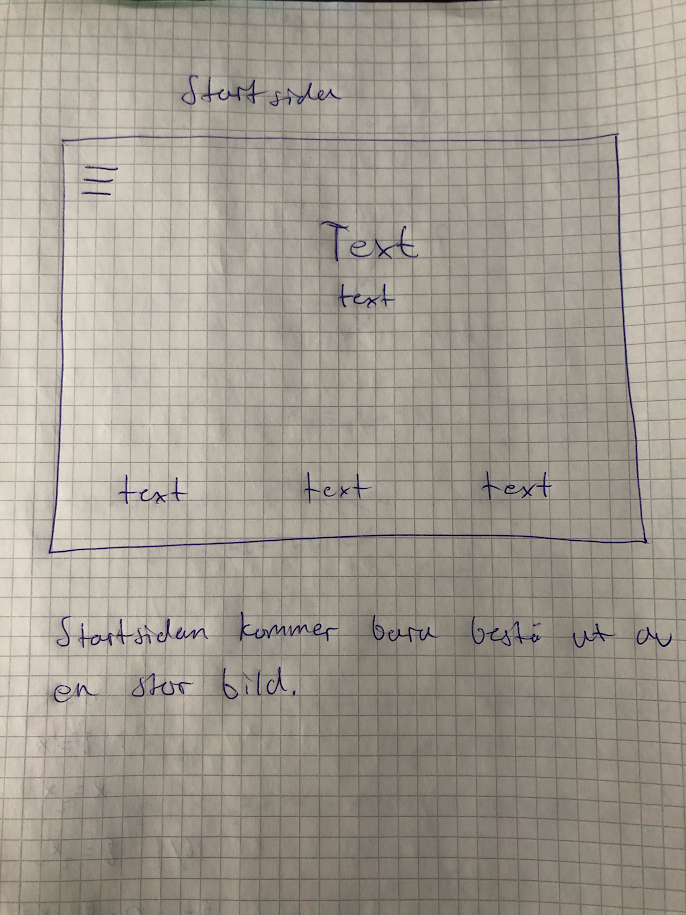 Startsidan
Text
text
text text text
Startsidan kommer bara bestå ut av
en stor bild.